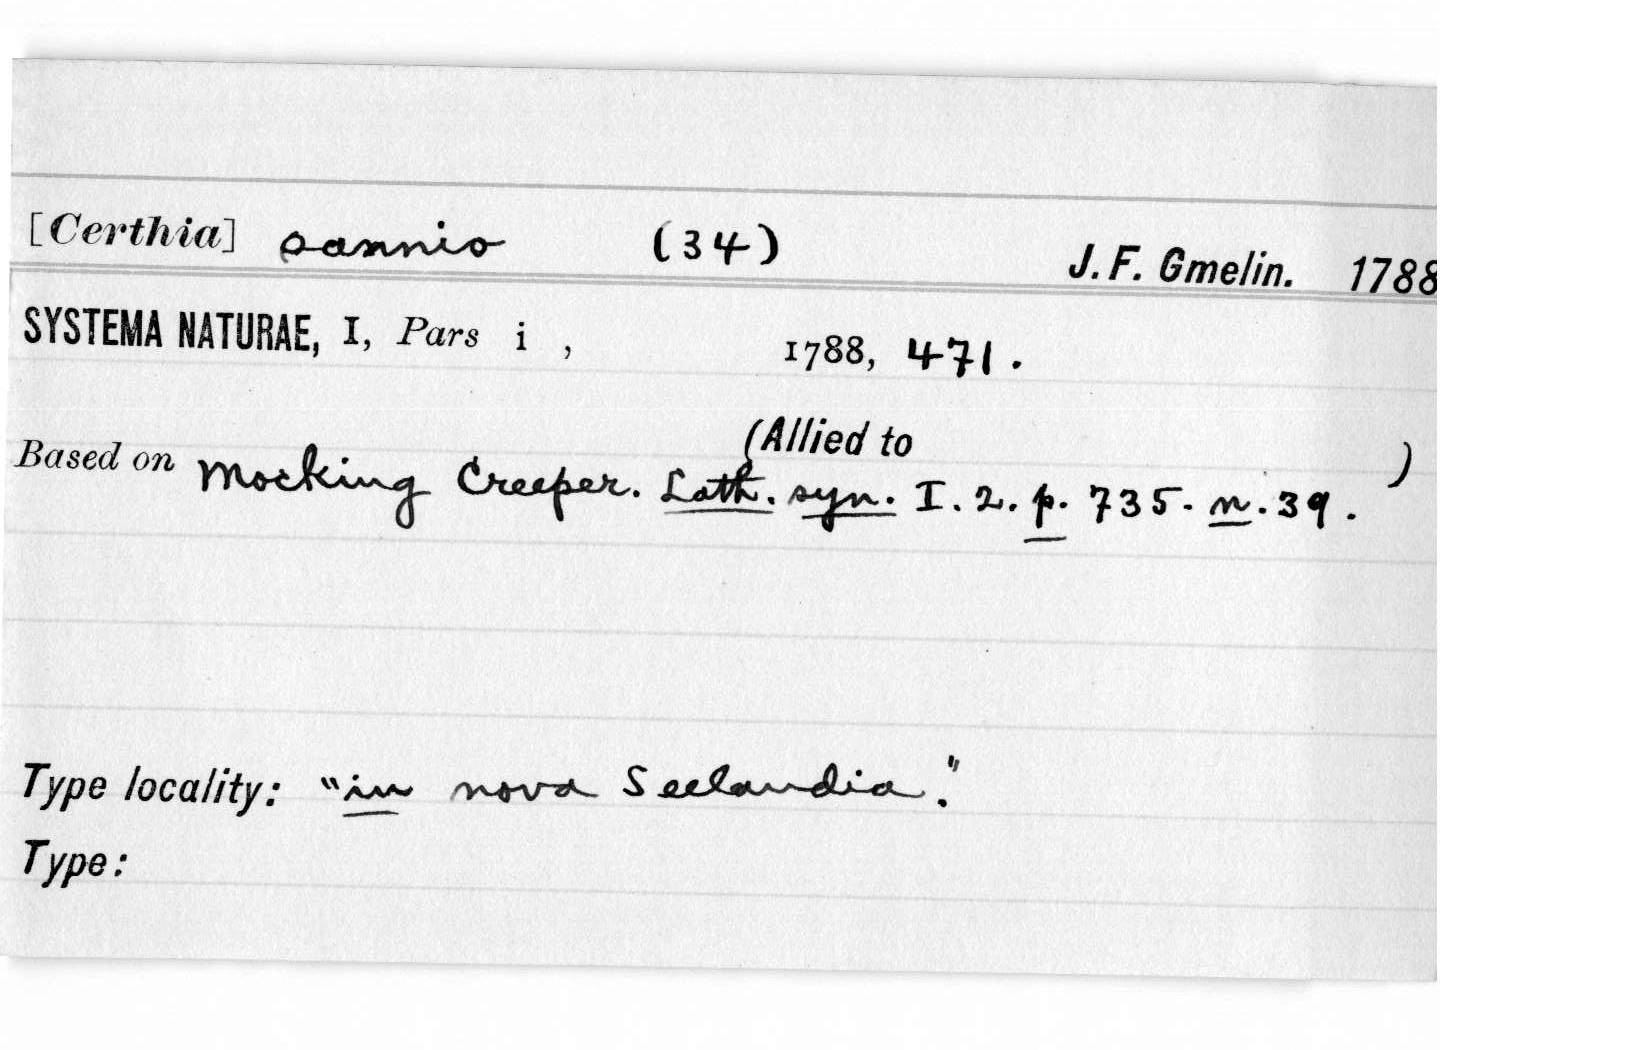 [Certhia] sannio (34) J. F. Gmelin. 1788
SYSTEMA NATURAE, I, Pars i , 1788, 471.
(Allied to )
Based on Mocking Creeper. Lath. syn. I. 2. p. 735. n. 39.
Type locality: "in nova Seelandia."
Type: